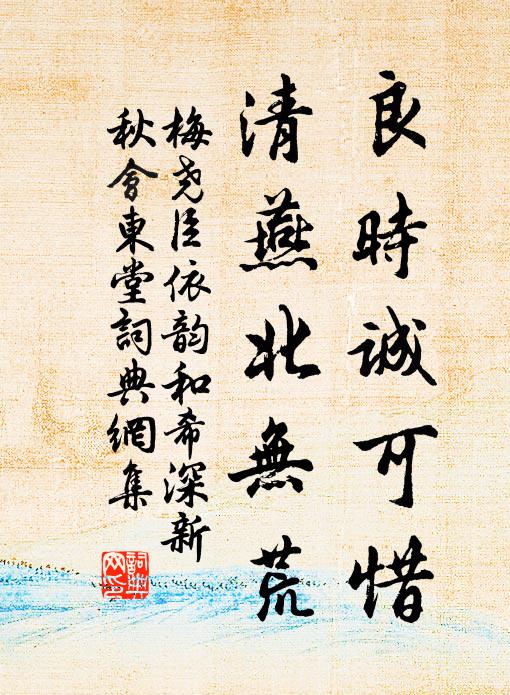 良時誠可惜
清燕北無荒
梅堯臣依韵和希深新
秋會東堂詞典網集